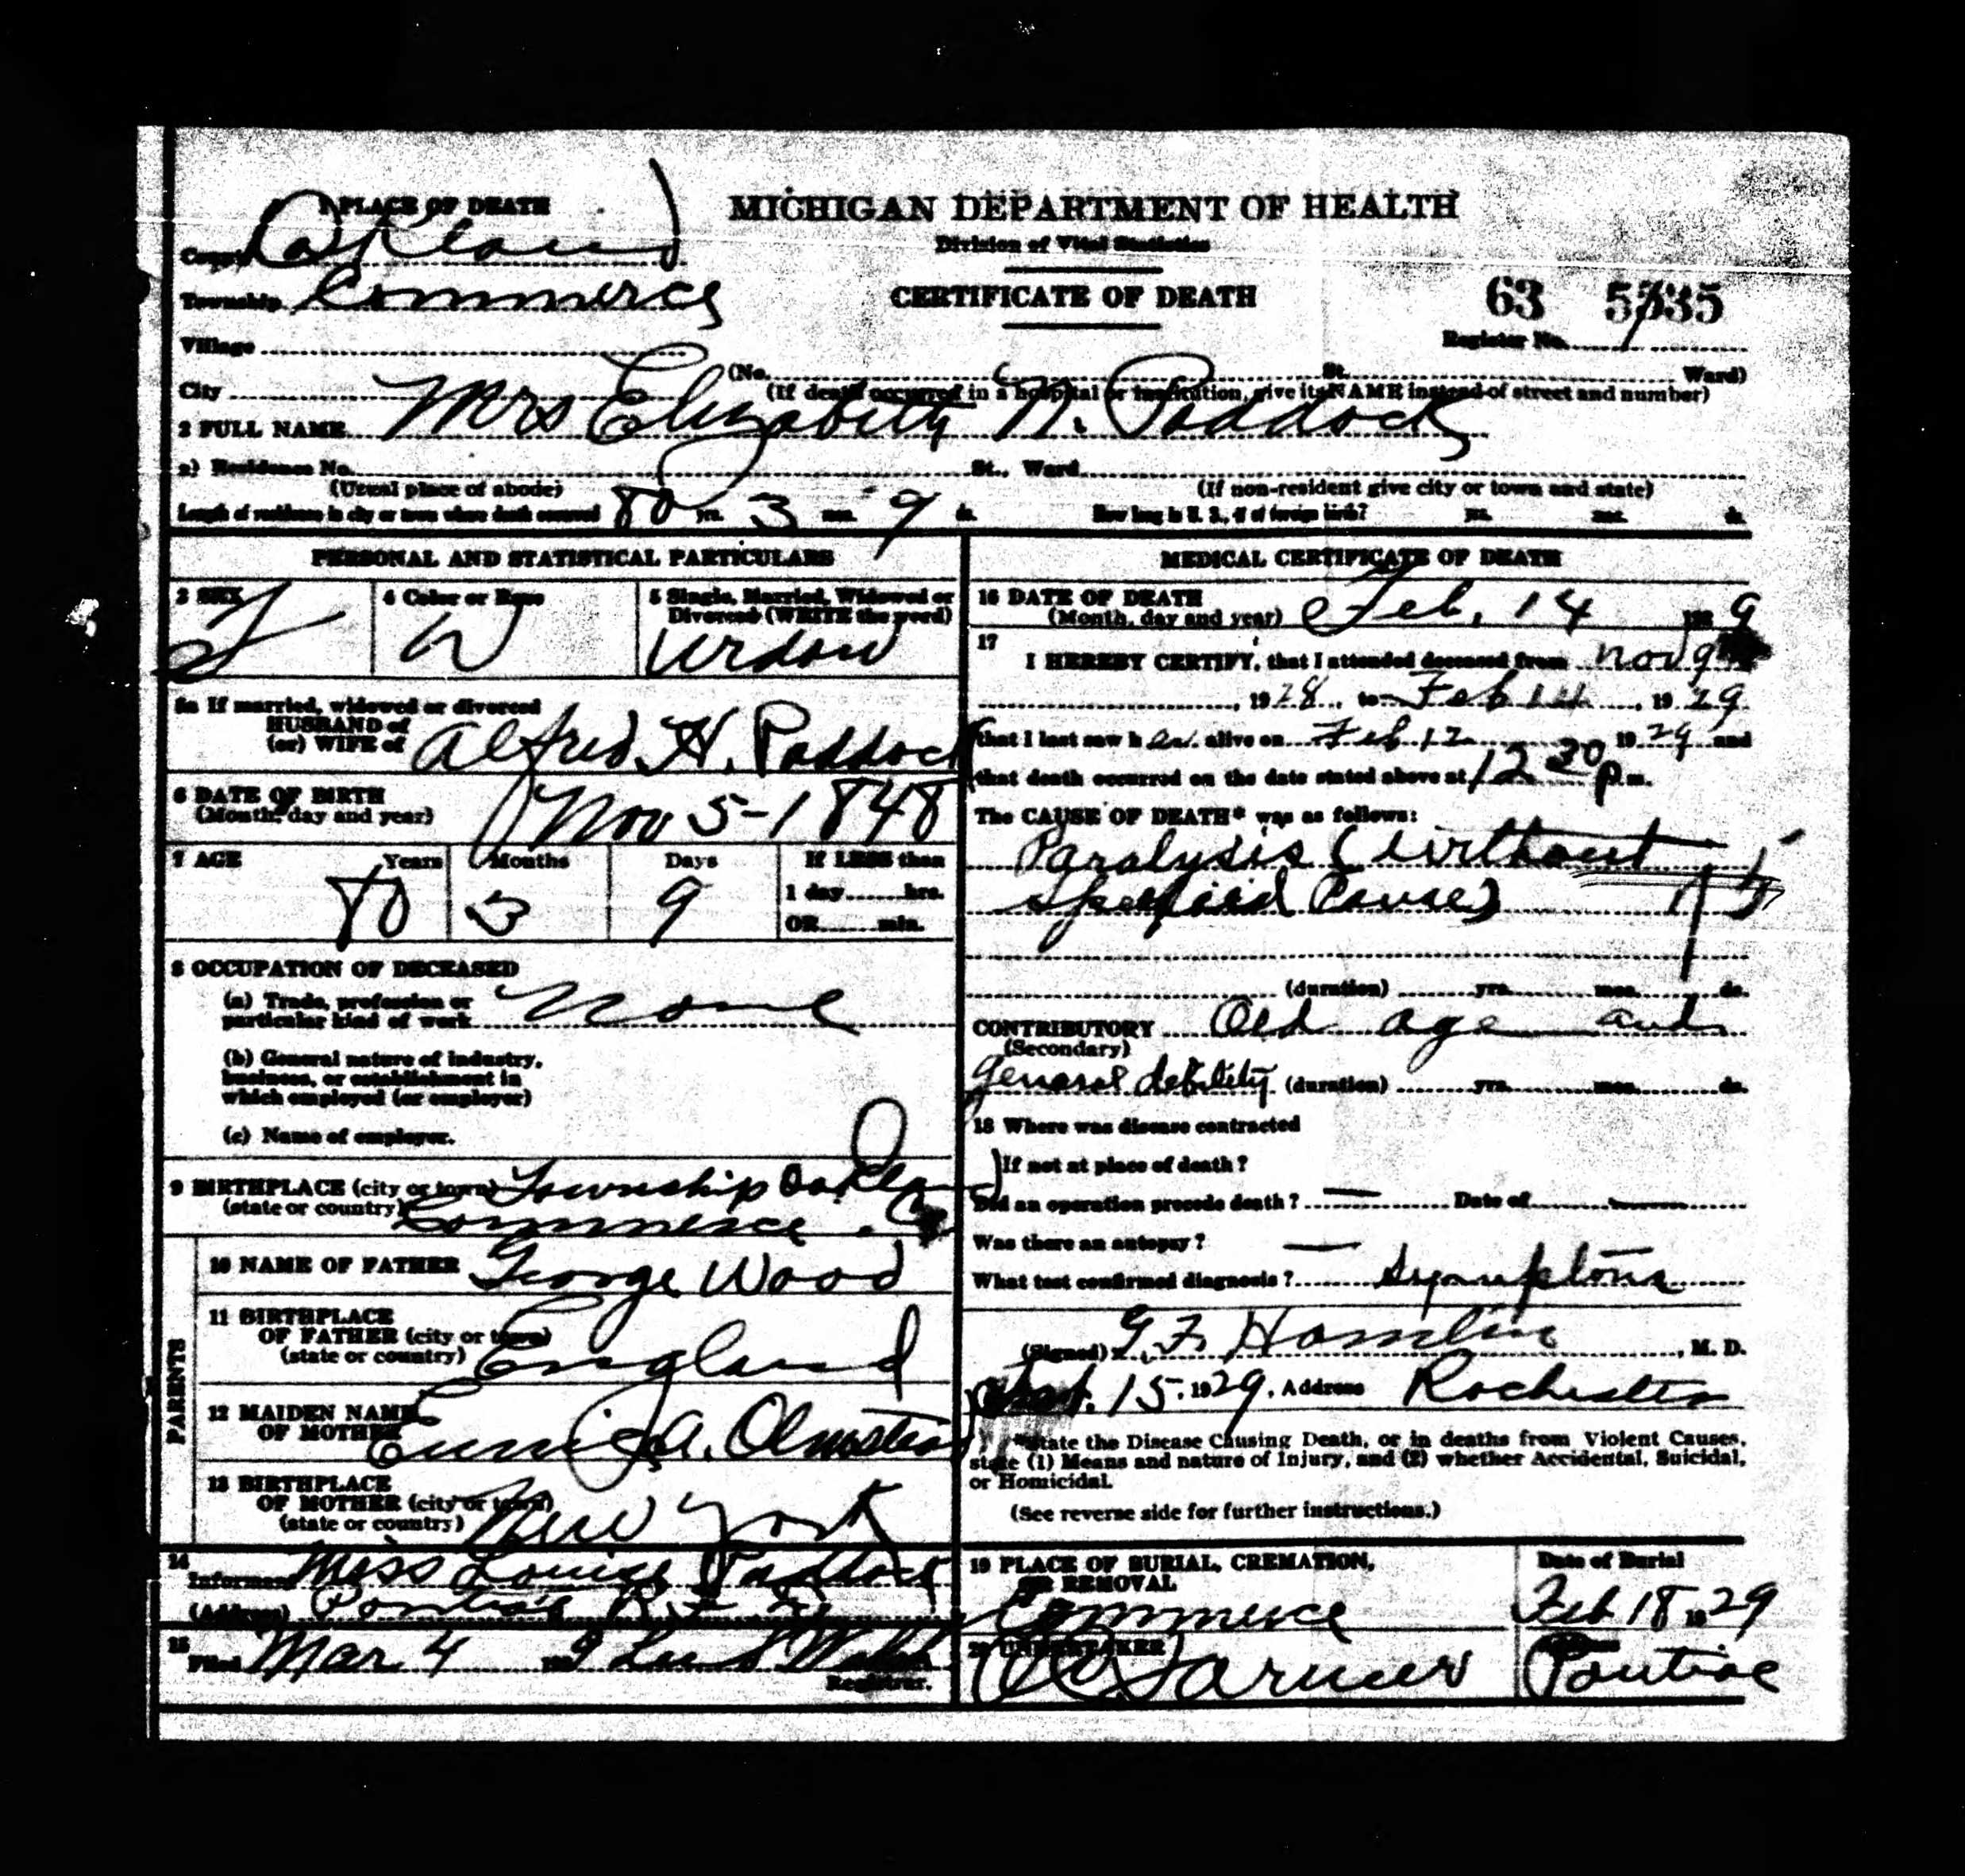 1 PLACE OF DEATH
MICHIGAN DEPARTMENT OF HEALTH
Division of Vital Statistics
County Oakland
Township Commerce
CERTIFICATE OF DEATH
63 5735
Register No.
Village
(No. St. Ward)
City
(If death occurred in a hospital or institution, give its NAME instead of street and number)
2 FULL NAME Mrs Elizabeth N. Paddock
a) Residence No. St., Ward
(Usual place of abode)
(If non-resident give city or town and state)
Length of residence in city or town where death occurred 80 yrs. 3 mos. 9 ds.
How long in U. S., if of foreign birth? yrs. mos. ds.
PERSONAL AND STATISTICAL PARTICULARS
3 SEX
F
4 Color or Race
W
5 Single, Married, Widowed or Divorced (WRITE the word)
Widow
5a If married, widowed or divorced
HUSBAND of
(or) WIFE of Alfred H. Paddock
6 DATE OF BIRTH
(Month, day and year) Nov 5-1848
7 AGE Years Months Days If LESS than
80 3 9 1 day hrs.
OR min.
8 OCCUPATION OF DECEASED
(a) Trade, profession or
particular kind of work None
(b) General nature of industry,
business, or establishment in
which employed (or employer)
(c) Name of employer.
9 BIRTHPLACE (city or town) Township Oakland
(state or country) Commerce Co
PARENTS
10 NAME OF FATHER George Wood
11 BIRTHPLACE
OF FATHER (city or town)
(state or country) England
12 MAIDEN NAME
OF MOTHER Eunice A. Olmstead
13 BIRTHPLACE
OF MOTHER (city or town)
(state or country) New York
14
Informant Miss Louise Paddock
(Address) Pontiac R.F.D.
15
Filed Mar 4 1929
Registrar.
MEDICAL CERTIFICATE OF DEATH
16 DATE OF DEATH
(Month, day and year) Feb. 14 1929
17
I HEREBY CERTIFY, that I attended deceased from Nov 9
, 1928, to Feb 14, 1929
that I last saw her alive on Feb 12 1929 and
that death occurred on the date stated above at 12 30 p.m.
The CAUSE OF DEATH* was as follows:
Paralysis (without
specified cause)
(duration) yrs. mos. ds.
CONTRIBUTORY Old age and
(Secondary)
general debility (duration) yrs. mos. ds.
18 Where was disease contracted
If not at place of death?
Did an operation precede death? — Date of —
Was there an autopsy? —
What test confirmed diagnosis? Symptoms
(Signed) G. F. Hamlin, M. D.
15. 1929, Address Rochester
*State the Disease Causing Death, or in deaths from Violent Causes,
state (1) Means and nature of Injury, and (2) whether Accidental, Suicidal,
or Homicidal.
(See reverse side for further instructions.)
19 PLACE OF BURIAL, CREMATION,
OR REMOVAL
Commerce
Date of Burial
Feb 18 1929
20 UNDERTAKER
Farmer
Address
Pontiac